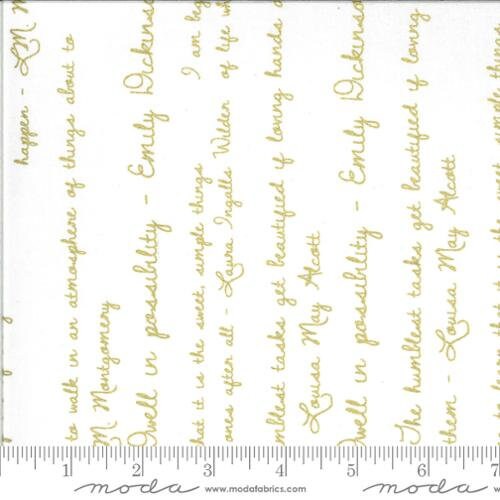 happen - L.M. M
to walk in an atmosphere of things about to
M. Montgomery
Dwell in possibility - Emily Dickinso
hat it is the sweet, simple things I am
ones after all - Laura Ingalls Wilder of life wh
mblest tasks get beautified if loving hands
Louisa May Alcott
Dwell in possibility - Emily Dickinso
The humblest tasks get beautified if loving
them - Louisa May Alcott
1 2 3 4 5 6 7
moda www.modafabrics.com moda